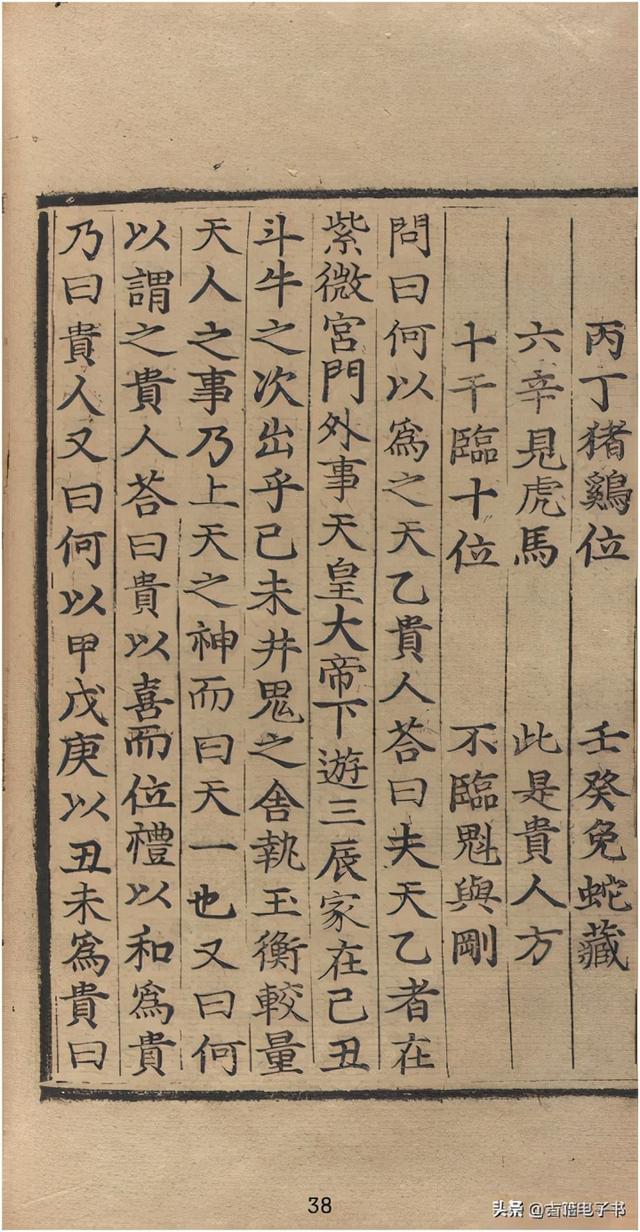 丙丁猪鷄位 壬癸兔蛇藏
六辛見虎馬 此是貴人方
十干臨十位 不臨魁與剛
問曰何以爲之天乙貴人荅曰夫天乙者在
紫微宮門外事天皇大帝下遊三辰家在己丑
斗牛之次出乎己未井鬼之舍執玉衡較量
天人之事乃上天之神而曰天一也又曰何
以謂之貴人荅曰貴以喜而位禮以和爲貴
乃曰貴人又曰何以甲戊庚以丑未爲貴曰
38
头条 @古籍电子书